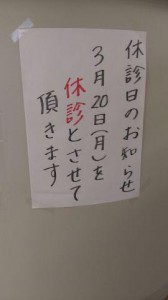 休診日のお知らせ
3月20日(月)を
休診とさせて
頂きます